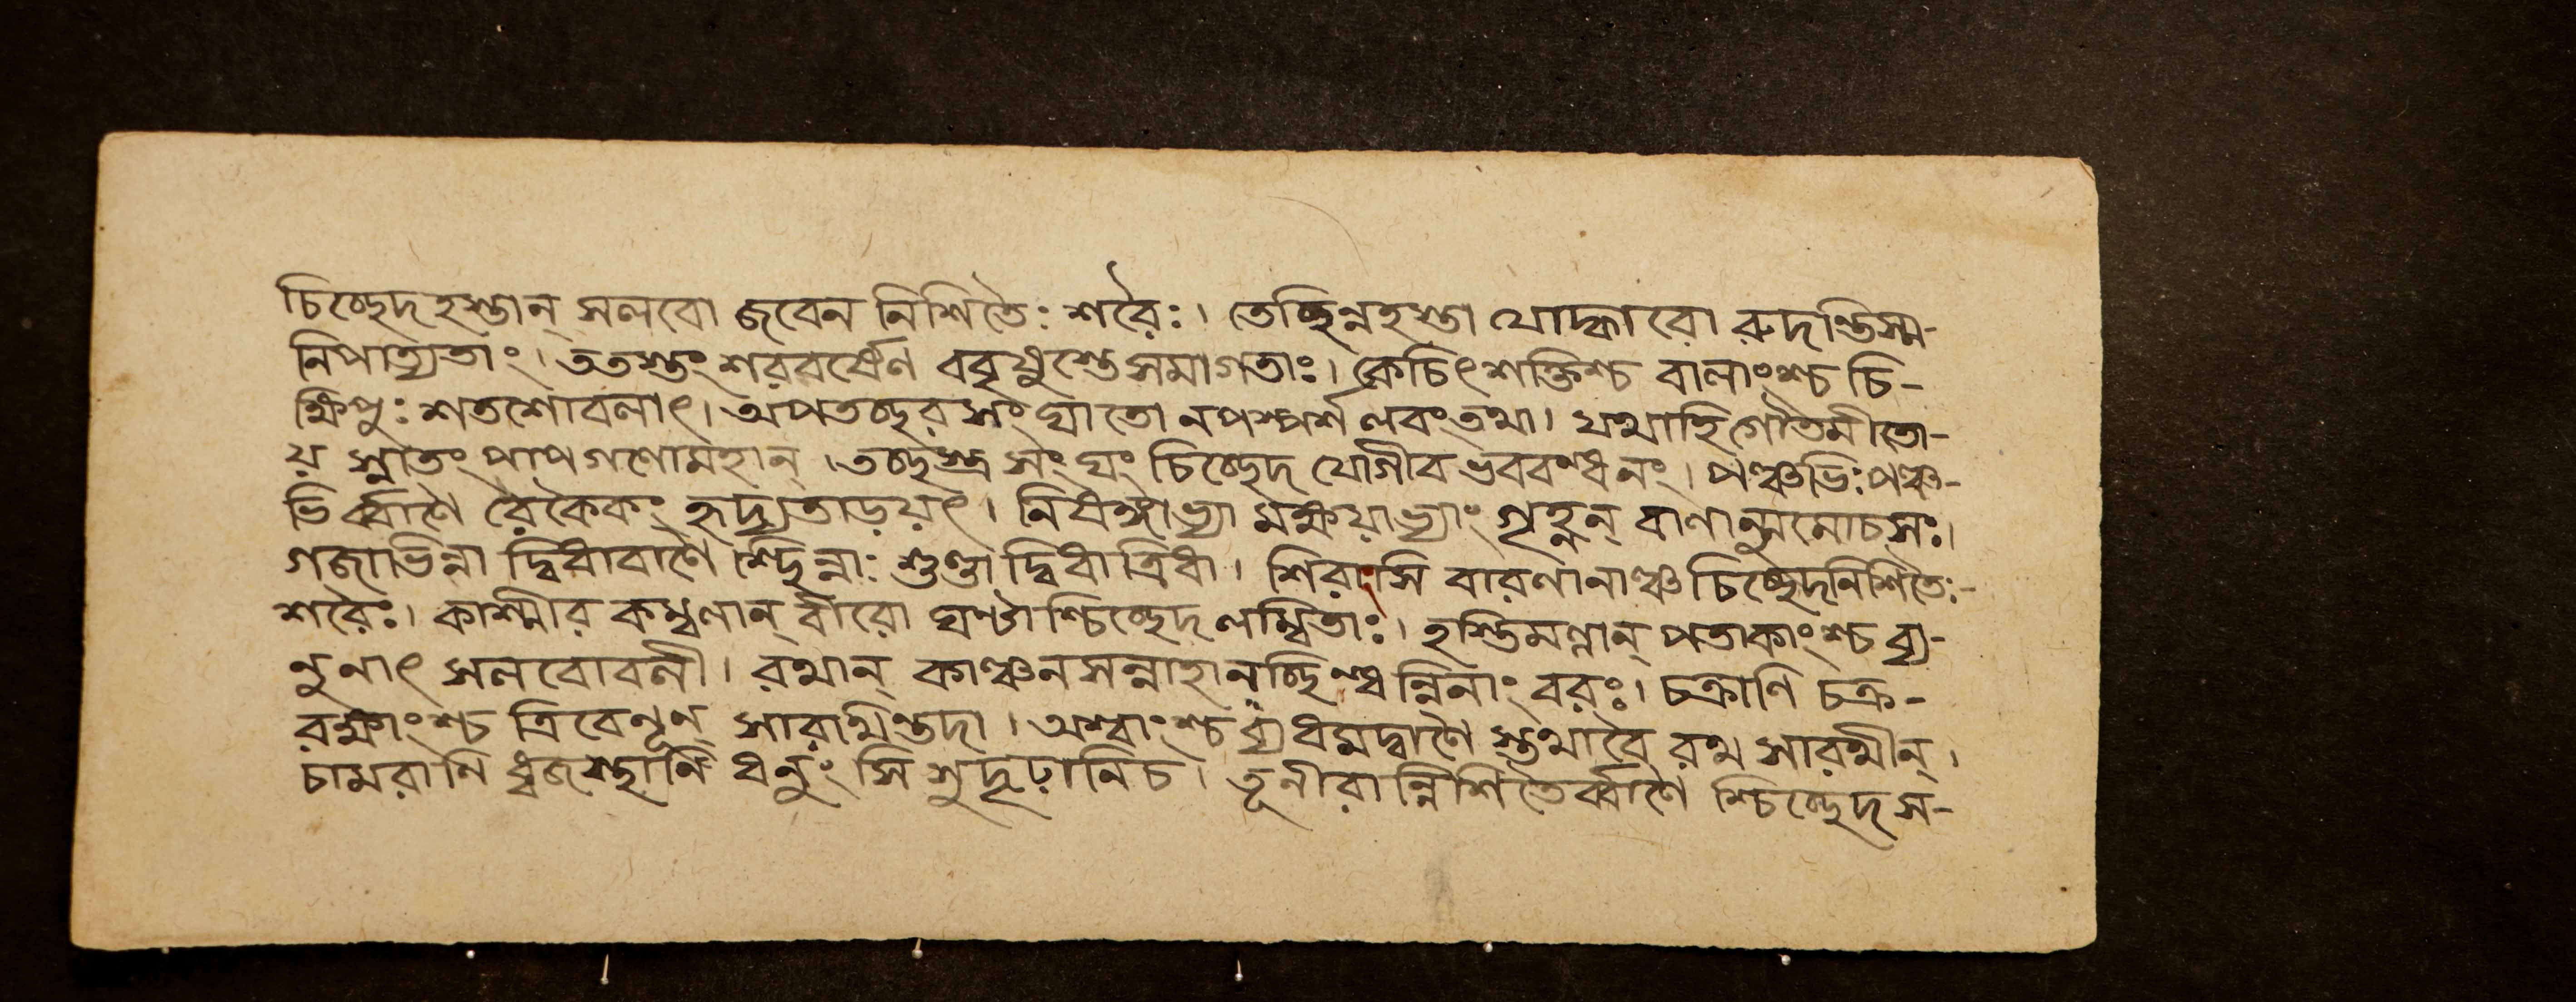 চিচ্ছেদ হস্তান্ সলবো জবেন নিশিতৈঃ শরৈঃ। তেচ্ছিন্নহস্তা যোদ্ধারো রুদণ্ডিস্ম-
নিপাত্যতাং। ততস্তং শরবর্ষেণ ববৃষুস্তে সমাগতাঃ। কেচিৎ শক্তিশ্চ বালাংশ্চ চি-
ক্ষিপুঃ শতশোবলাৎ। অপতচ্ছর সংঘাতো নপস্পর্শ লবং তথা। যথাহি গৌতমীতো-
য় স্নাতং পাপ গণোমহান্। তচ্ছস্ত্র সংঘং চিচ্ছেদ যোগীব ভববন্ধনং। পঞ্চভিঃ পঞ্চ-
ভির্ব্বাণৈ রৈকৈকং হৃদ্যতাড়য়ৎ। নিষঙ্গাভ্যা মক্ষয়াভ্যাং গৃহ্নন্ বাণান্মুমোচসঃ।
গজাভিন্না দ্বিধাবাণৈ শ্ছিন্নাঃ শুণ্ডা দ্বিধা ত্রিধা। শিরাংসি বারণানাঞ্চ চিচ্ছেদনিশিতৈঃ-
শরৈঃ। কাশ্মীর কম্বলান্ বীরো ঘণ্টাশ্চিচ্ছেদ লম্বিতাঃ। হস্তিমল্লান্ পতাকাংশ্চ ব্য-
লুনাৎ সলবোবলী। রথান্ কাঞ্চনসন্নাহানচ্ছিনদ্ধন্বিনাং বরঃ। চক্রাণি চক্র-
রক্ষাংশ্চ ত্রিবেনূন্ সারথিংস্তদা। অশ্বাংশ্চ ব্যধমদ্বাণৈ স্তথাবৈ রথ সারথীন্।
চামরাণি ধ্বজচ্ছাণি ধনুংসি সুদৃঢ়ানিচ। তূনীরান্নিশিতৈর্ব্বাণৈ শ্চিচ্ছেদ স-